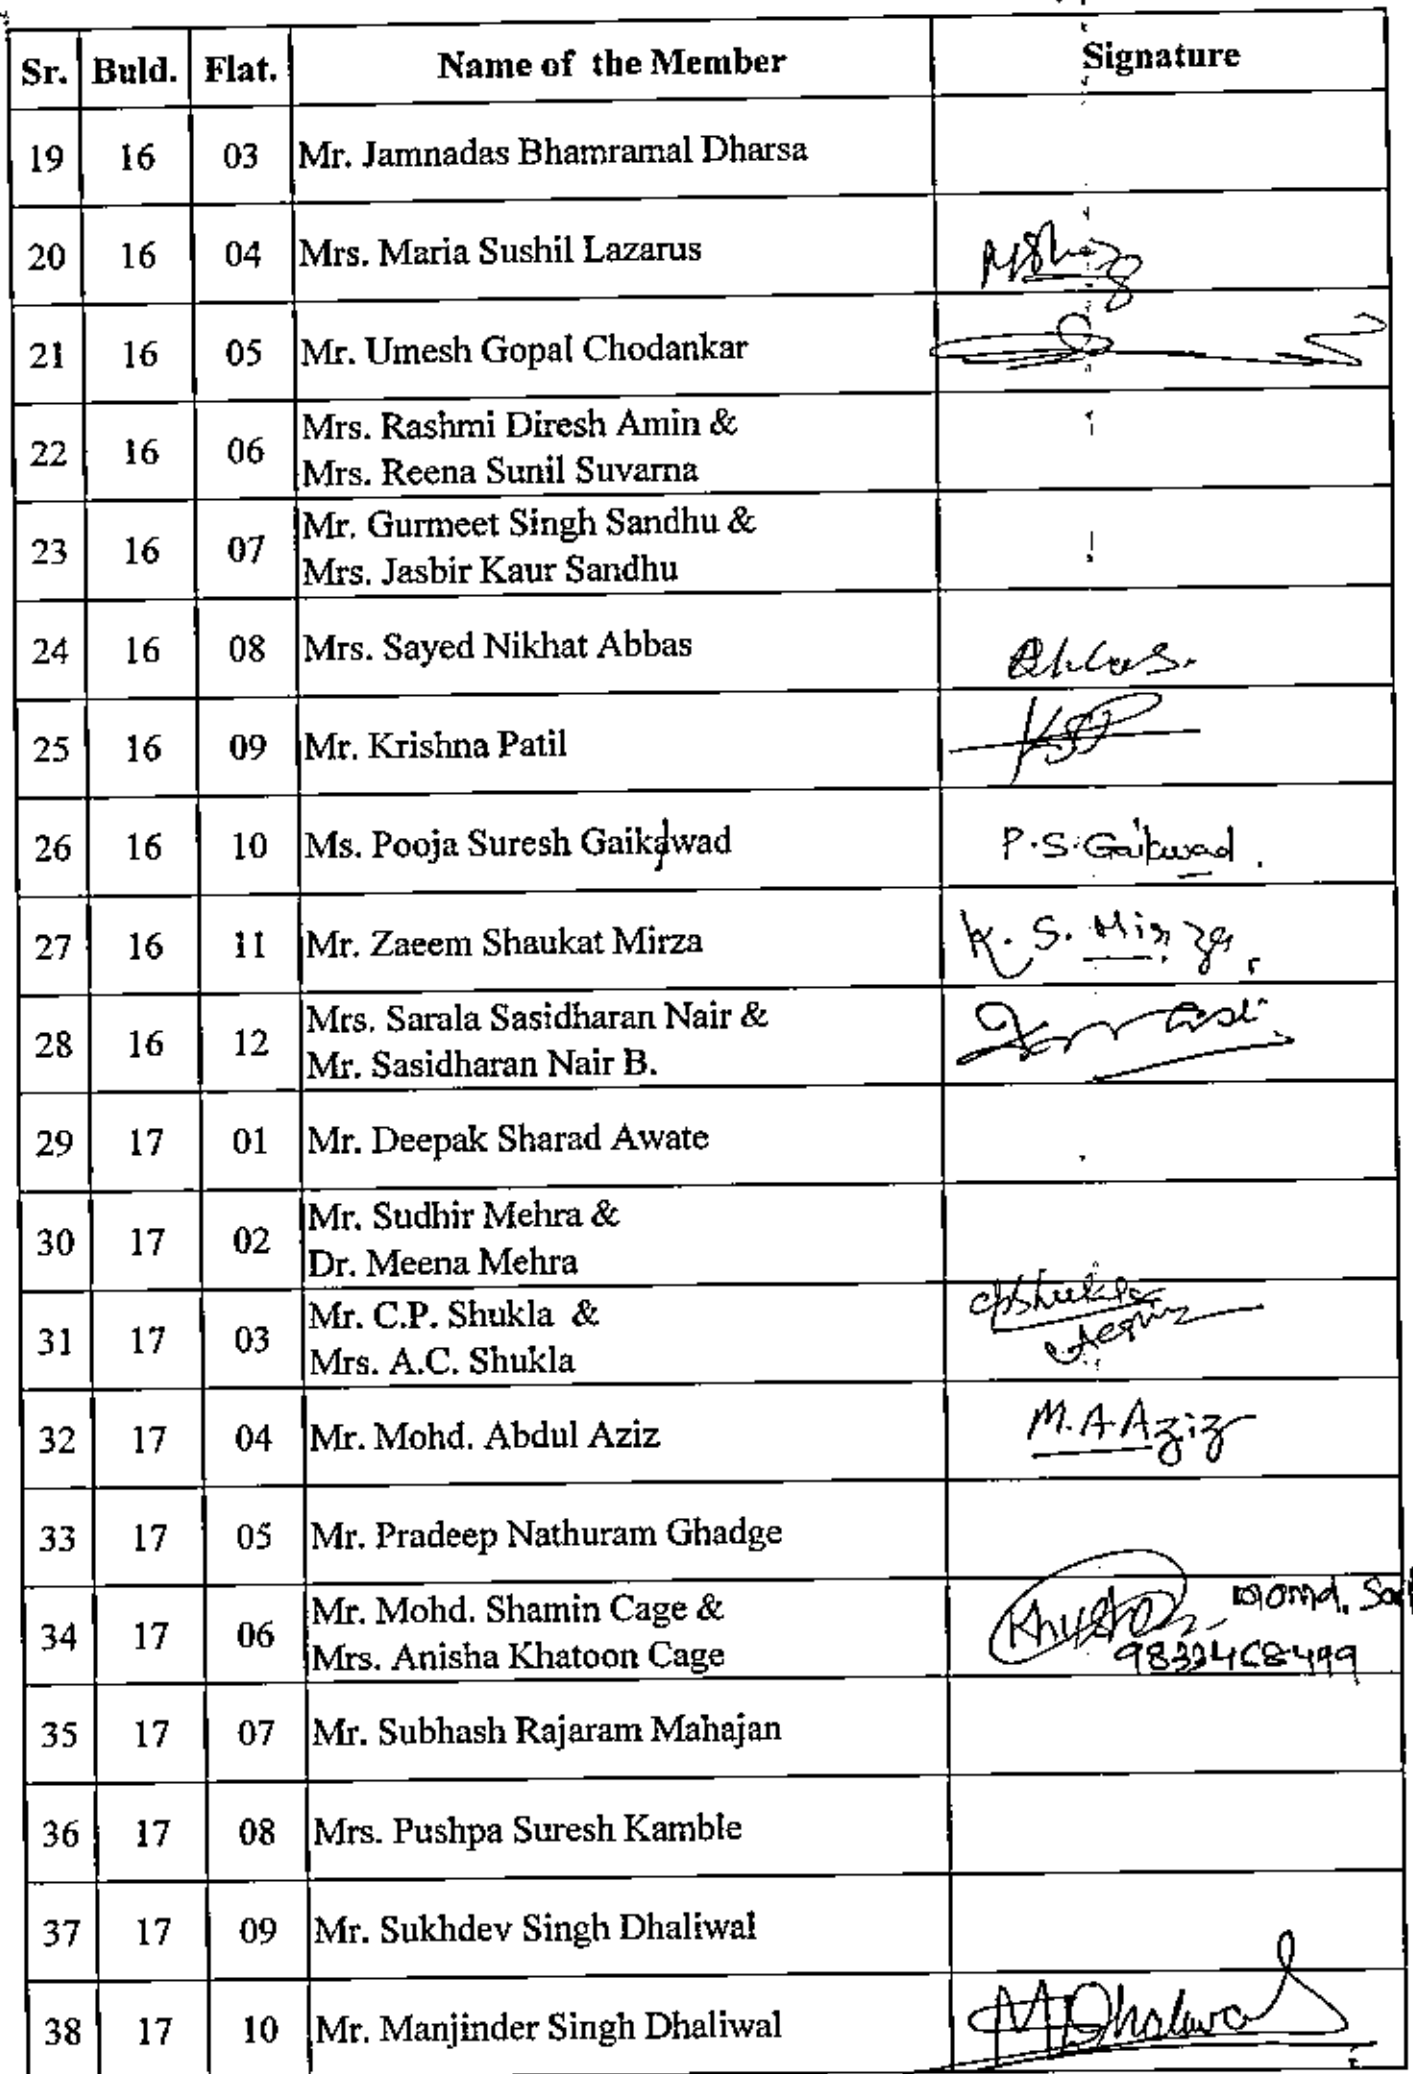 Sr. Buld. Flat. Name of the Member Signature
19 16 03 Mr. Jamnadas Bhamramal Dharsa
20 16 04 Mrs. Maria Sushil Lazarus
21 16 05 Mr. Umesh Gopal Chodankar
22 16 06 Mrs. Rashmi Diresh Amin &
Mrs. Reena Sunil Suvarna
23 16 07 Mr. Gurmeet Singh Sandhu &
Mrs. Jasbir Kaur Sandhu
24 16 08 Mrs. Sayed Nikhat Abbas
25 16 09 Mr. Krishna Patil
26 16 10 Ms. Pooja Suresh Gaikawad P.S.Gaikwad.
27 16 11 Mr. Zaeem Shaukat Mirza K. S. Mirza
28 16 12 Mrs. Sarala Sasidharan Nair &
Mr. Sasidharan Nair B.
29 17 01 Mr. Deepak Sharad Awate
30 17 02 Mr. Sudhir Mehra &
Dr. Meena Mehra
31 17 03 Mr. C.P. Shukla & CPShukla
Mrs. A.C. Shukla
32 17 04 Mr. Mohd. Abdul Aziz M.A Aziz
33 17 05 Mr. Pradeep Nathuram Ghadge
34 17 06 Mr. Mohd. Shamin Cage &
Mrs. Anisha Khatoon Cage
35 17 07 Mr. Subhash Rajaram Mahajan
36 17 08 Mrs. Pushpa Suresh Kamble
37 17 09 Mr. Sukhdev Singh Dhaliwal
38 17 10 Mr. Manjinder Singh Dhaliwal MDhaliwal